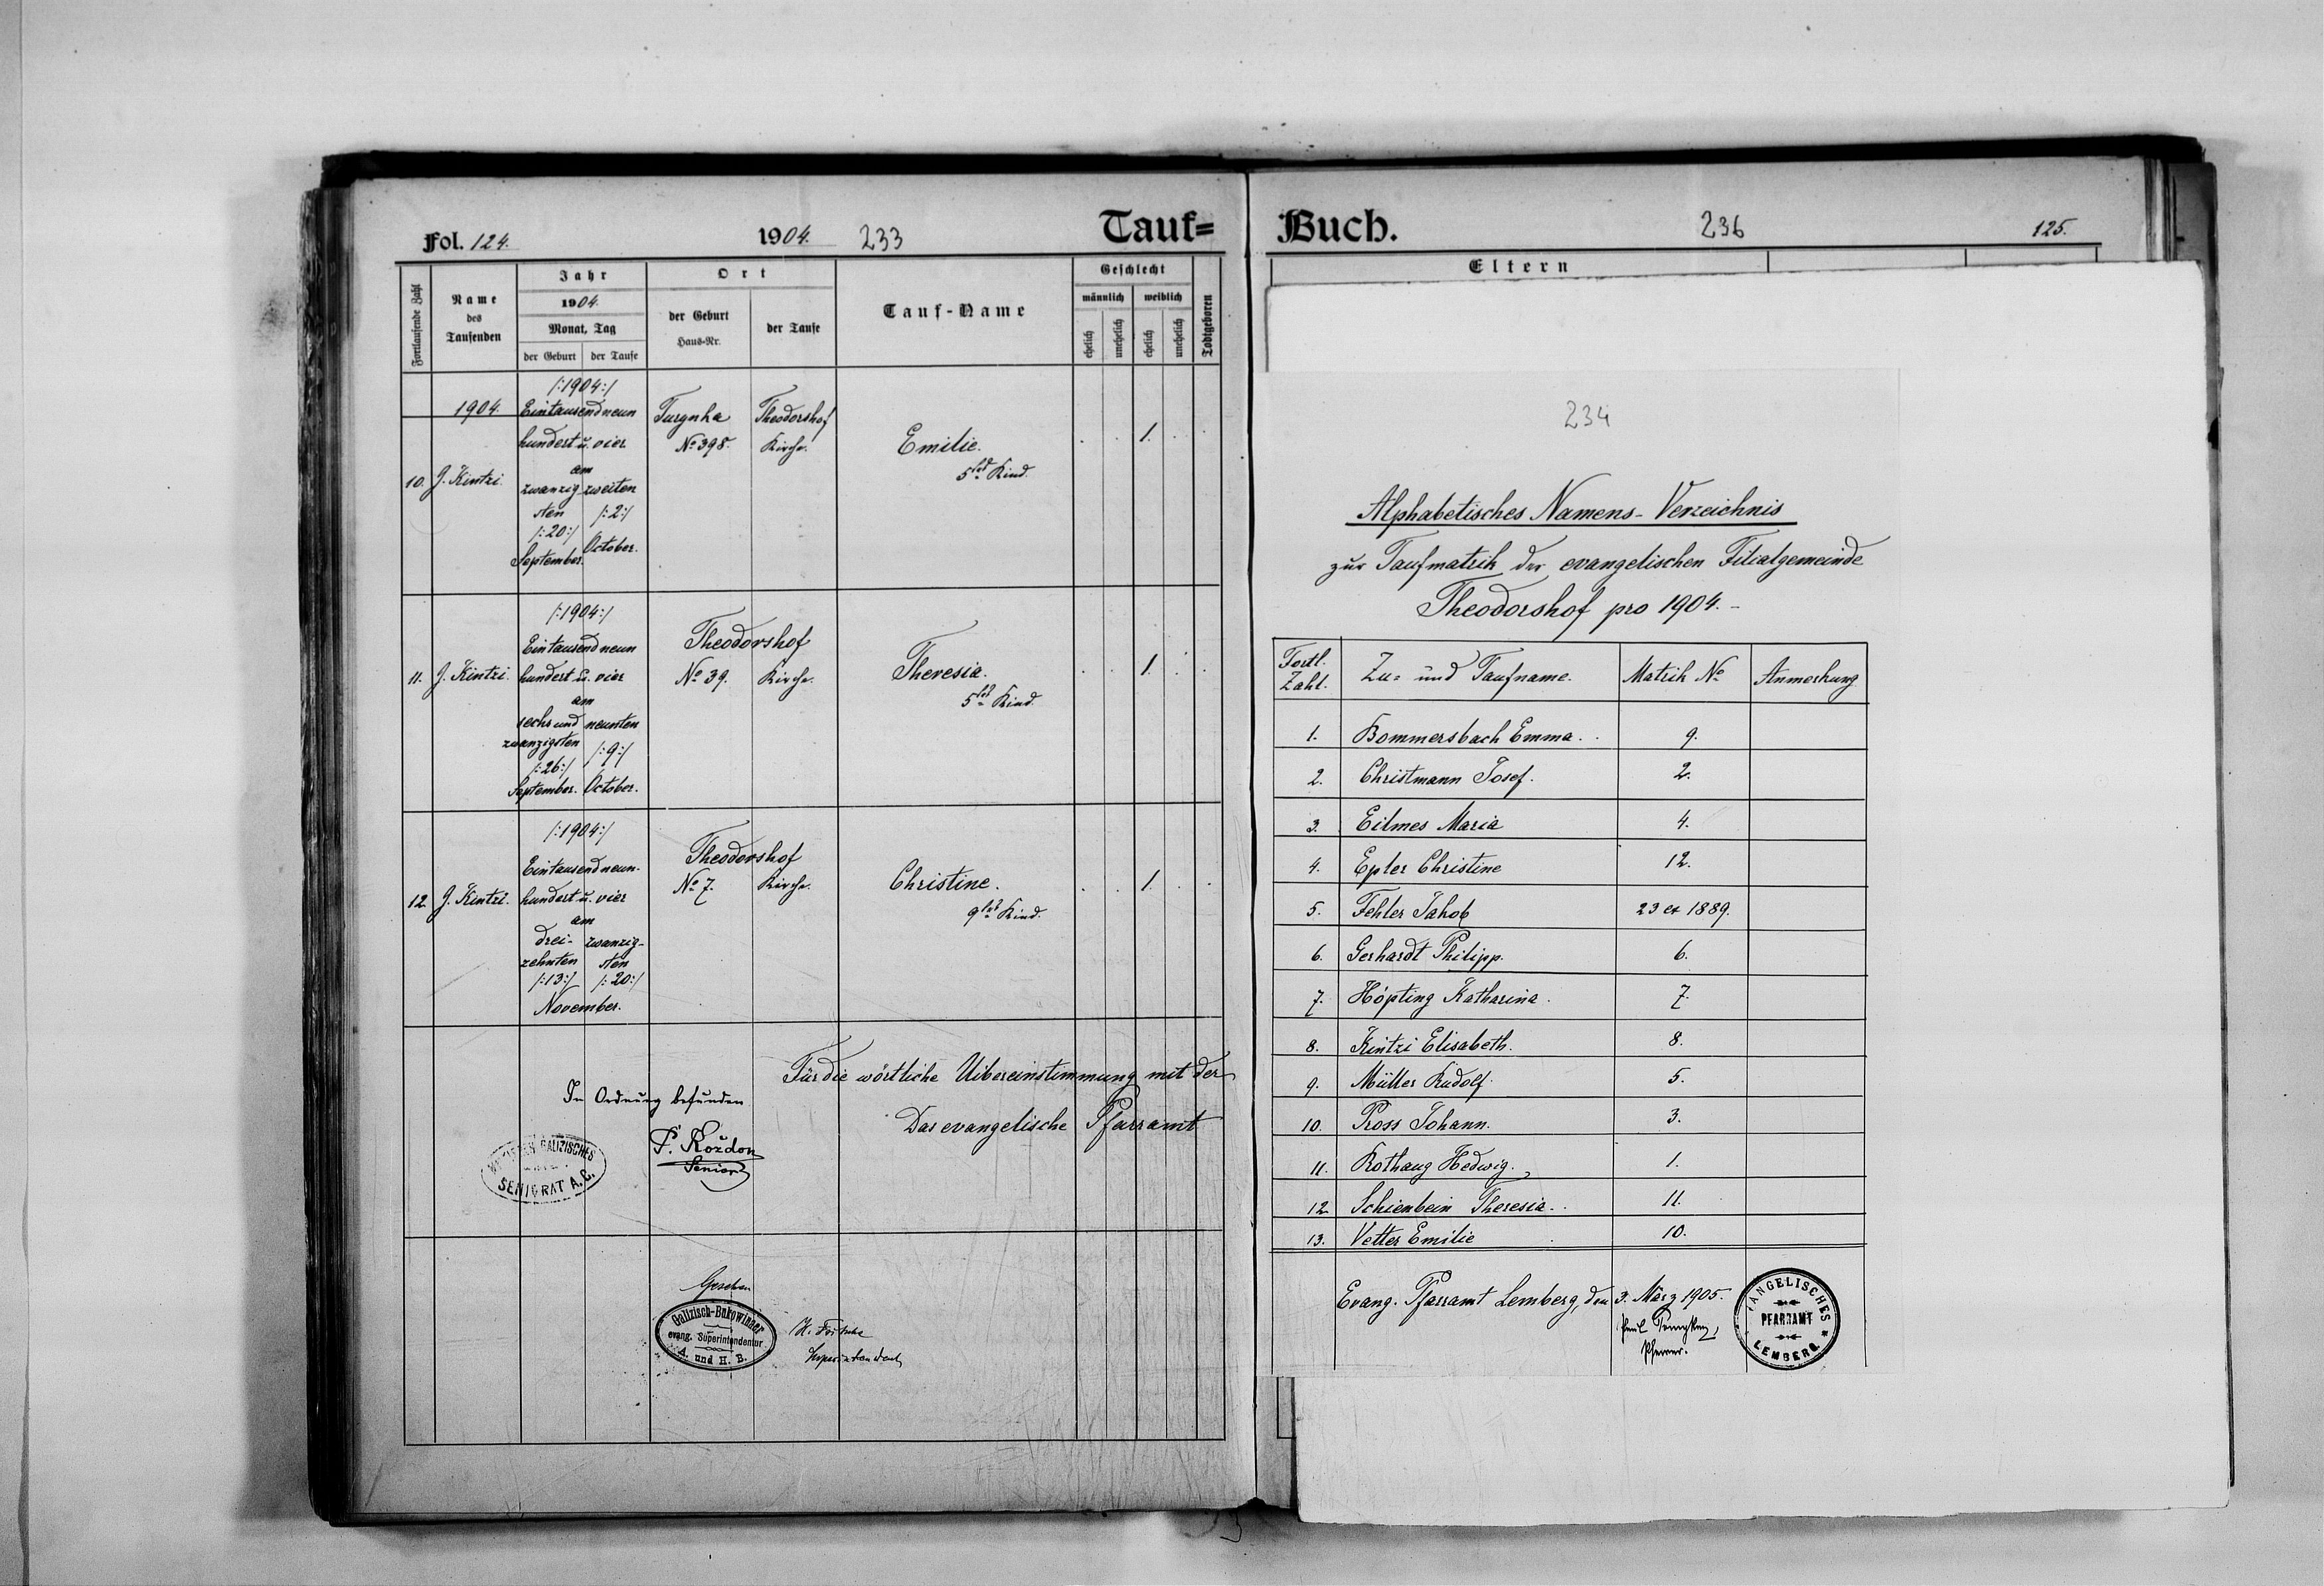 Fol. 124.
1904.
233
Tauf=
Fortlaufende Zahl
Name
des
Taufenden
Jahr
1904.
Monat, Tag
der Geburt
der Taufe
Ort
der Geburt
Haus-Nr.
der Taufe
Tauf-Name
Geschlecht
männlich
weiblich
ehelich
unehelich
ehelich
unehelich
Todtgeboren
/:1904:/
1904. Eintausendneun Turynka Theodorshof
hundert u. vier No 398. Kirche. Emilie. 1.
am
5tes Kind.
10. J. Kintzi. zwanzig zweiten
sten /:2:/
/:20:/
September. October.
/:1904:/
Eintausendneun Theodorshof
11. J. Kintzi. hundert u. vier No 39. Kirche. Theresia. 1.
am
5tes Kind.
sechsund neunten
zwanzigsten
/:26:/ /:9:/
September. October.
/:1904:/
Eintausendneun- Theodorshof
12. J. Kintzi. hundert u. vier No 7. Kirche. Christine. 1.
am
9tes Kind.
drei- zwanzig-
zehnten sten
/:13:/ /:20:/
November.
Für die wörtliche Uibereinstimmung mit der
In Ordnung befunden
Das evangelische Pfarramt
GALIZISCHES
SENIORAT A.C.
P. Kożdoń
Senior
Gesehen
Galizisch-Bukowinaer
evang. Superintendentur
A. und H. B.
H. Fritsche
Superintendent
Buch.
236
125.
Eltern
234
Alphabetisches Namens-Verzeichnis
zur Taufmatrik der evangelischen Filialgemeinde
Theodorshof pro 1904.-
Fortl. Zahl. Zu- und Taufname. Matrik No Anmerkung
1. Bommersbach Emma. 9.
2. Christmann Josef. 2.
3. Eilmes Maria 4.
4. Epler Christine 12.
5. Fehler Jakob 23 ex 1889.
6. Gerhardt Philipp. 6.
7. Höpting Katharina. 7.
8. Kintzi Elisabeth. 8.
9. Müller Rudolf. 5.
10. Pross Johann. 3.
11. Rothaug Hedwig. 1.
12. Schienbein Theresia. 11.
13. Vetter Emilie 10.
Evang. Pfarramt Lemberg, den 3. März 1905.
Pfarrer.
EVANGELISCHES
PFARRAMT
LEMBERG